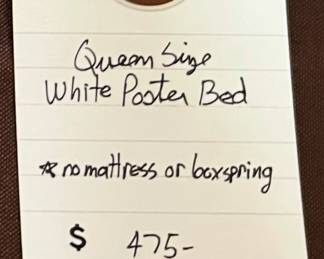 Queen Size
White Poster Bed
☆ no mattress or boxspring
$ 475-